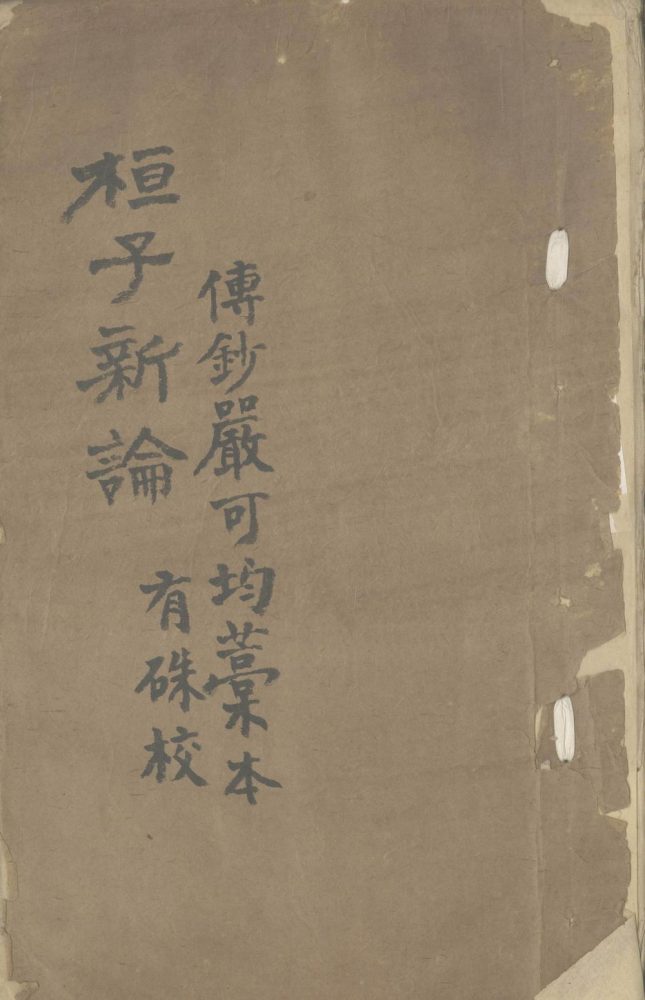 傳鈔嚴可均藁本
有硃校
桓子新論